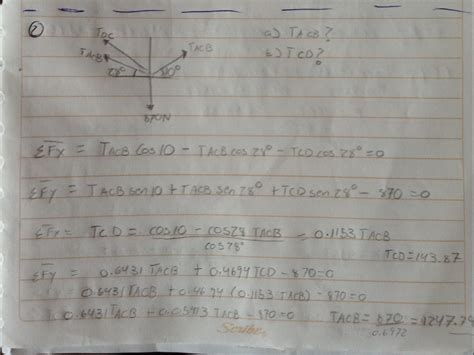 2
TDC
TACB
TACB
28°
10°
870N
a) TACB?
b) TCD?
ΣFy = TACB Cos10 - TACB cos28° - TCD cos 28° = 0
ΣFy = TACB sen10 + TACB sen28° + TCD sen28° - 870 = 0
ΣFy = TCD = cos10 - cos28 TACB = 0.1153 TACB
cos28°
TCD=143.87
ΣFy = 0.6431 TACB + 0.4694 TCD - 870=0
0.6431 TACB + 0.4694 (0.1153 TACB) - 870=0
0.6431 TACB - 0.05413 TACB - 870=0
TACB = 870 = 1247.79
0.6972
Scribe